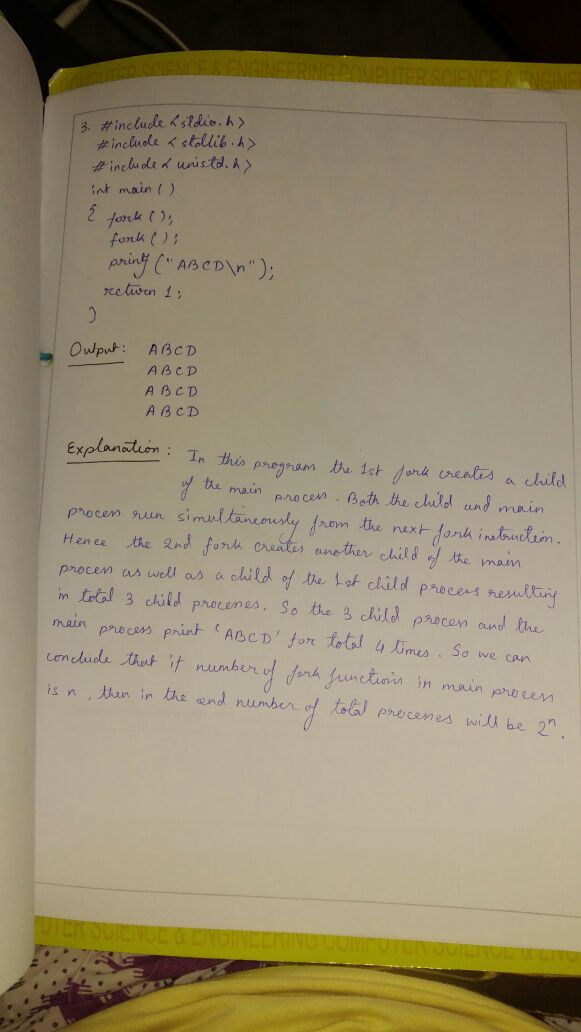 COMPUTER SCIENCE & ENGINEERING COMPUTER SCIENCE & ENGINE
3. #include <stdio.h>
#include <stdlib.h>
#include < unistd.h>
int main ()
{ fork ();
fork ();
printf ("ABCD\n");
return 1;
}
Output: ABCD
ABCD
ABCD
ABCD
Explanation: In this program the 1st fork creates a child
of the main process. Both the child and main
process run simultaneously from the next fork instruction.
Hence the 2nd fork creates another child of the main
process as well as a child of the 1st child process resulting
in total 3 child processes. So the 3 child process and the
main process print 'ABCD' for total 4 times. So we can
conclude that if number of fork functions in main process
is n, then in the end number of total processes will be 2ⁿ.
UTER SCIENCE & ENGINEERING COMPUTER SCIENCE & ENG